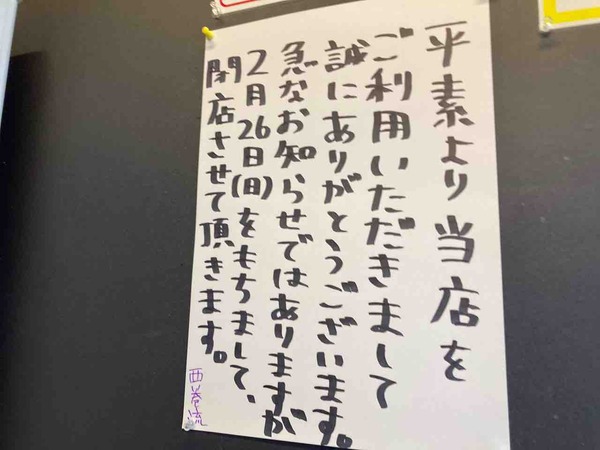 平素より当店を
ご利用いただきまして
誠にありがとうございます。
急なお知らせではありますが
2月26日(日)をもちまして、
閉店させて頂きます。
西巻流